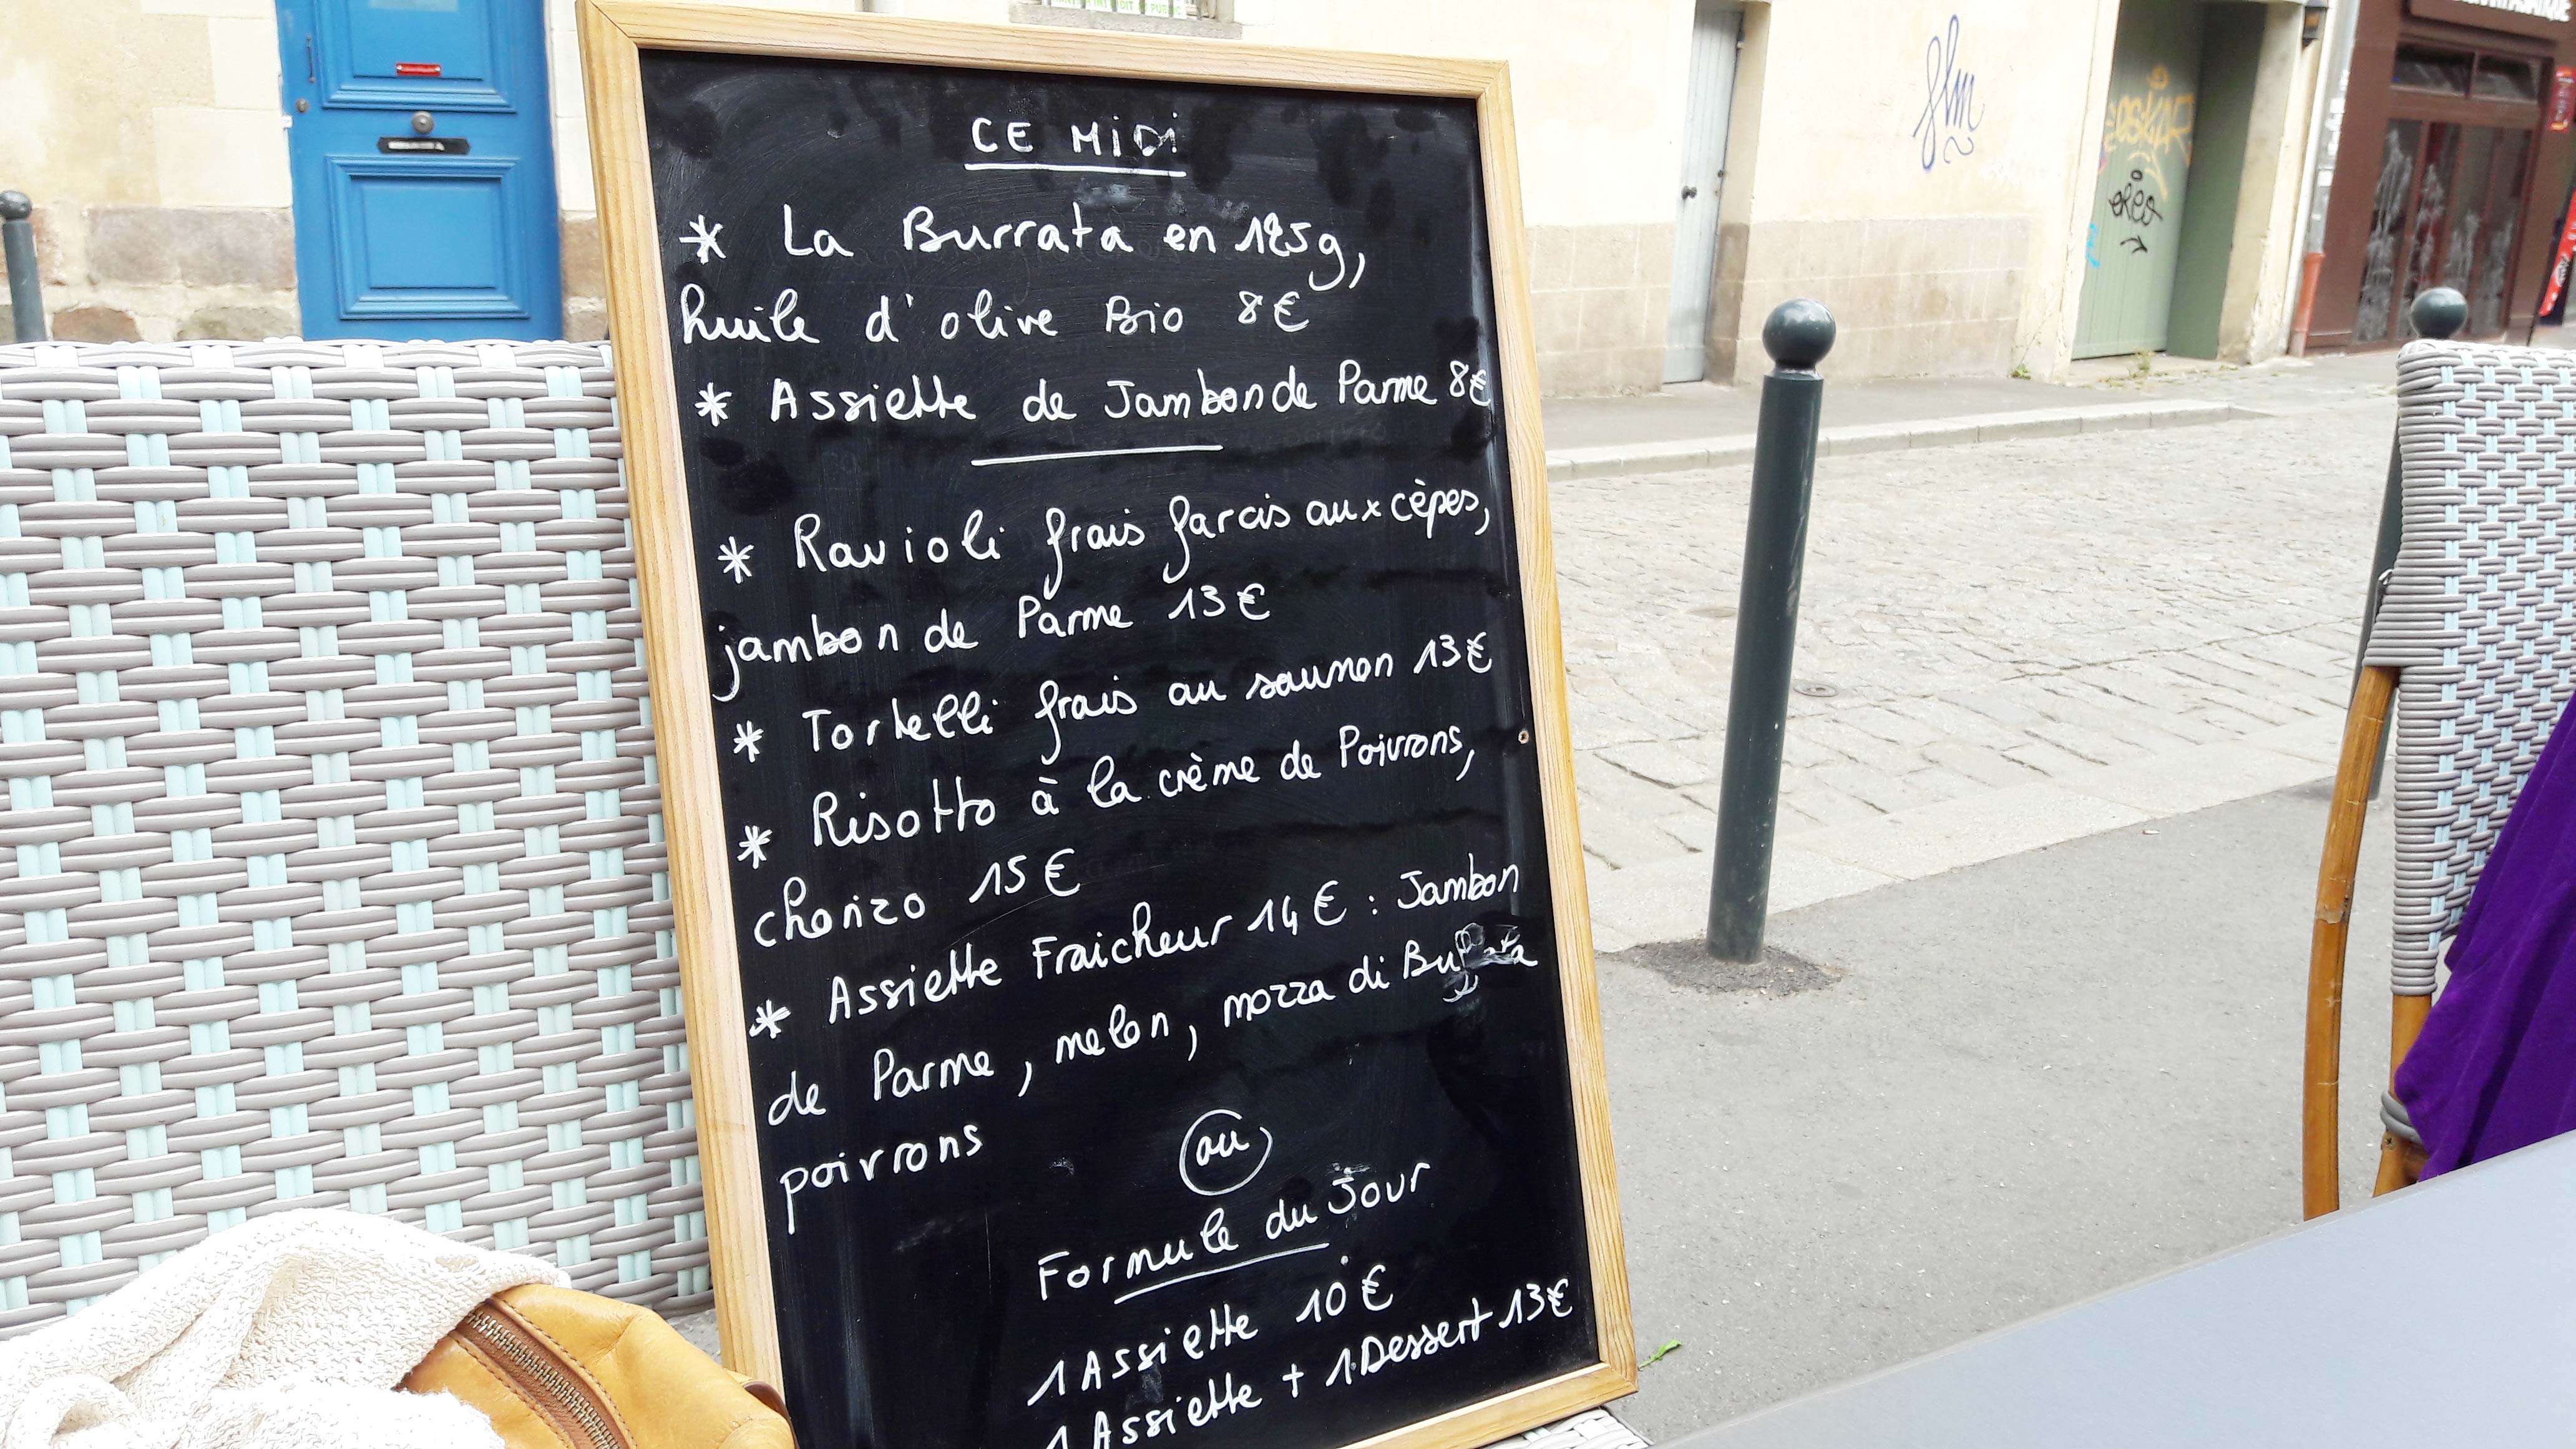 CE MiDi
* La Burrata en 125g,
huile d'olive Bio 8€
* Assiette de Jambon de Parme 8€
* Ravioli frais farcis aux cèpes,
jambon de Parme 13€
* Tortelli frais au saumon 13€
* Risotto à la crème de Poivrons,
chorizo 15€
* Assiette Fraicheur 14€ : Jambon
de Parme, melon, mozza di
poivrons
ou
Formule du Jour
1 Assiette 10€
1 Assiette + 1 Dessert 13€